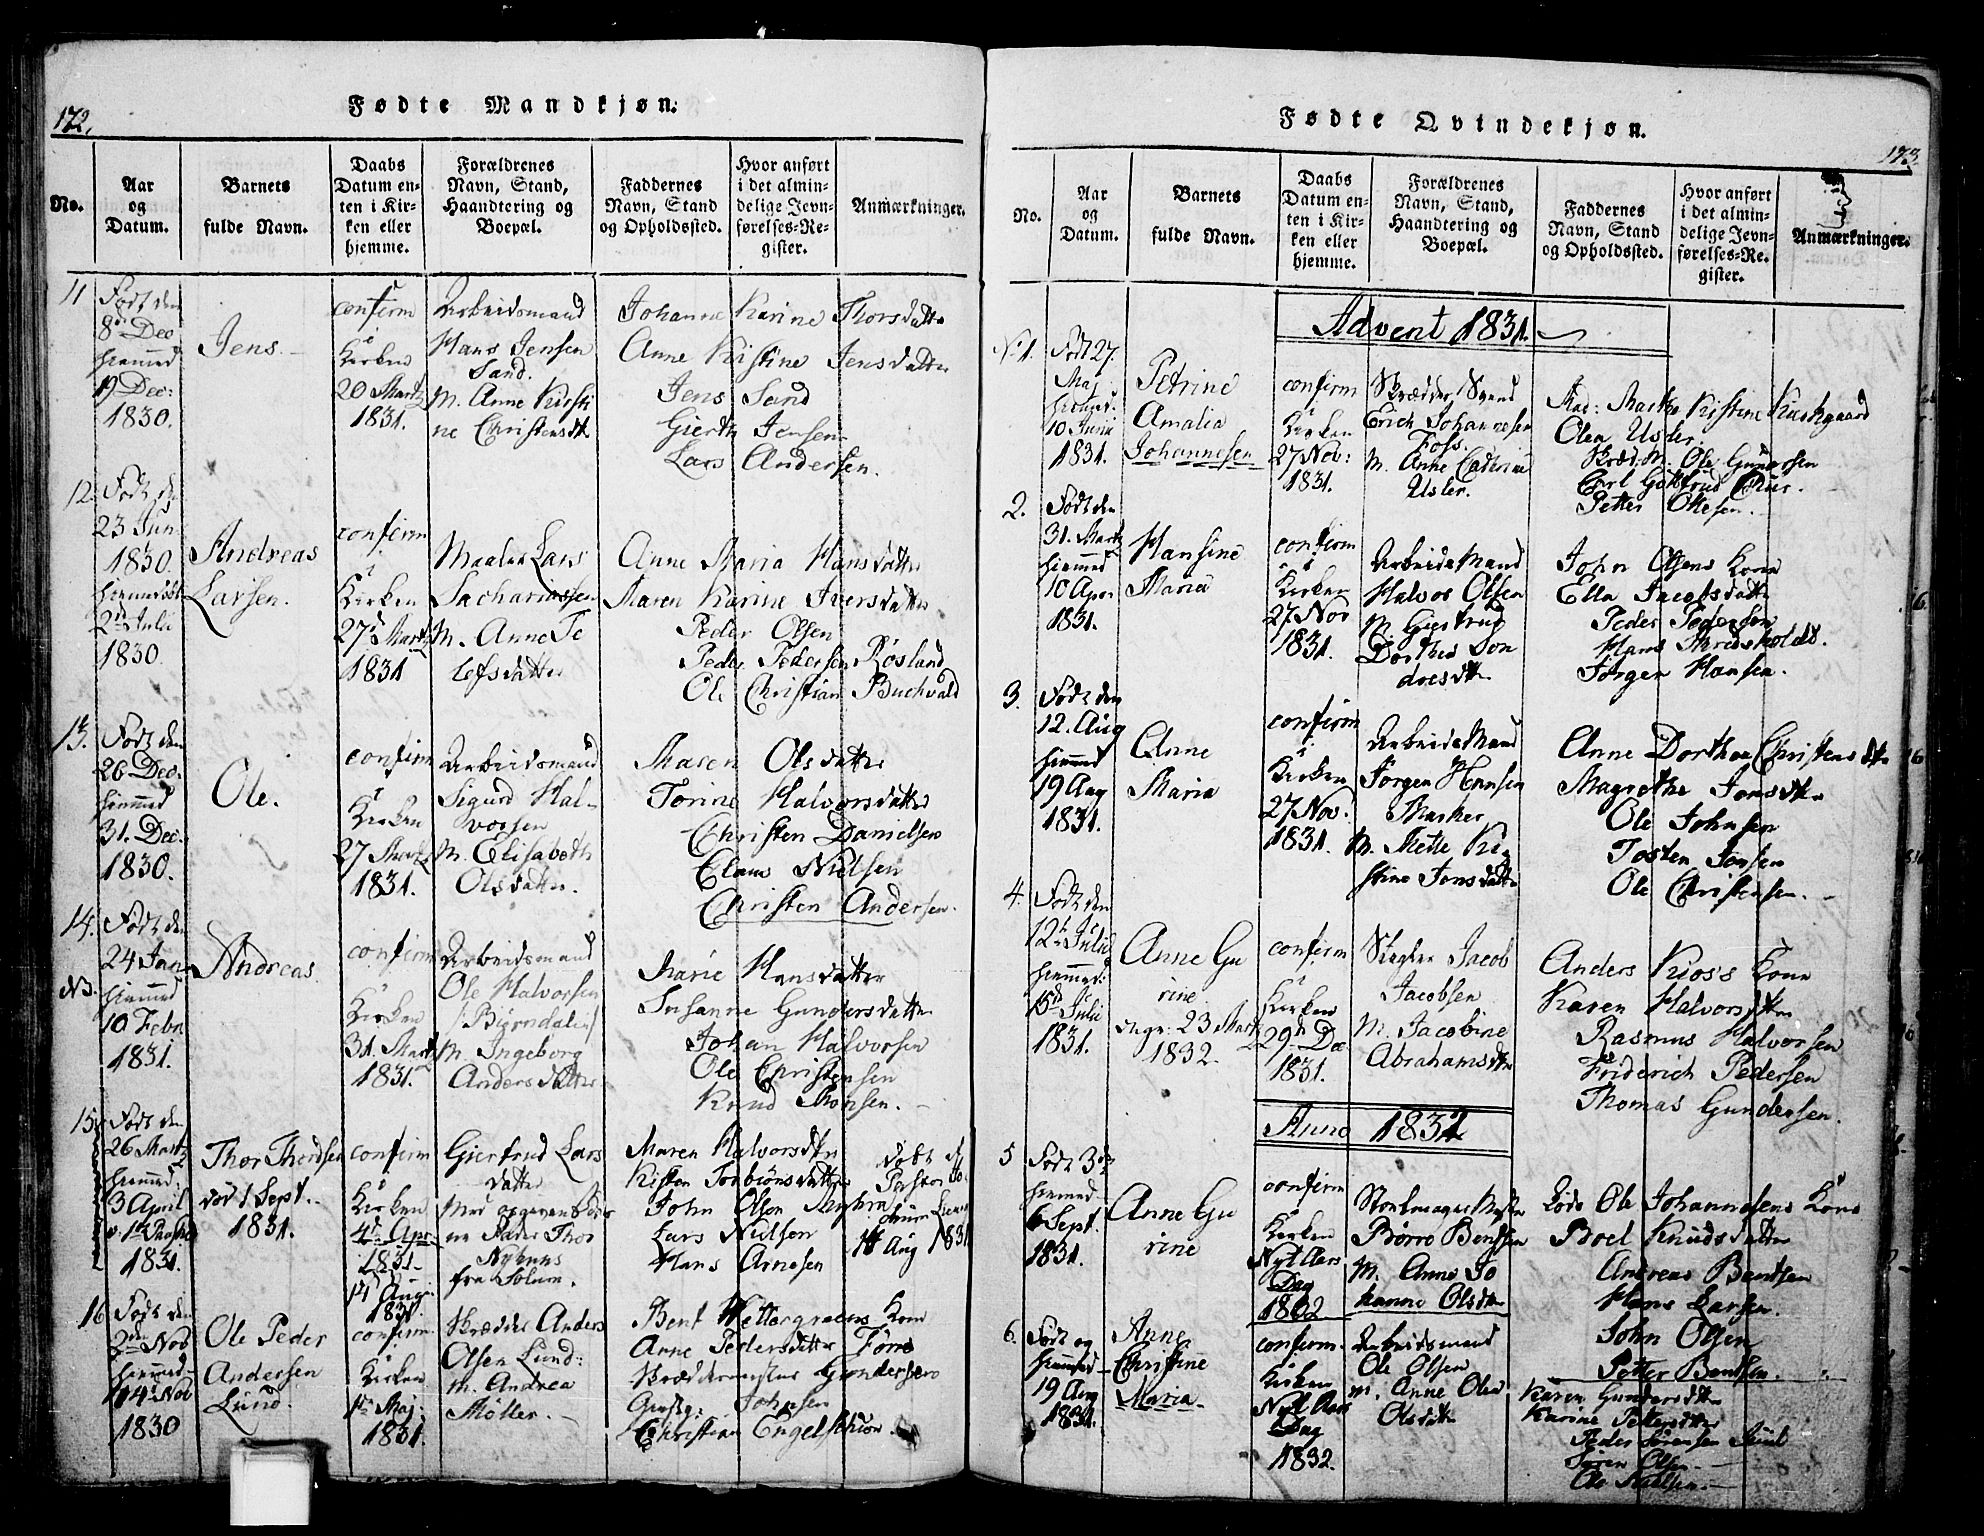 172.
Fødte Mandkjøn.
No.
Aar og Datum.
Barnets fulde Navn.
Daabs Datum enten i Kirken eller hjemme.
Forældrenes Navn, Stand, Haandtering og Boepæl.
Faddernes Navn, Stand og Opholdssted.
Hvor anført i det almindelige Jevnførelses-Register.
Anmærkninger.
11
Født den
8de Dec
hiemmed
19 Dec:
1830.
Jens.
confirm
i
Kirken
20 Martz
1831.
Arbeidsmand
Hans Jensen
Sand.
M. Anne Kirsti
ne Christensdt
Johanne Karine Thorsdatter
Anne Kistine Jensdatter
Jens Sand
Gierth Jensen
Lars Andersen.
12.
Født d
23 Jun
1830.
2d Juli
1830.
Andreas
Larsen.
confirm
i
Kirken
27d Martz
1831
Maaler Lars
Sachariassen
M. Anne Te
lefsdatter
Anne Maria Hansdatter
Maren Karine Iversdatter
Peder Olsen
Peder Pedersen Røsland
Ole Christian Buchvald
13.
Født den
26 Dec.
hiemmed
31. Dec.
1830.
Ole.
confirm
i
Kirken
27 Martz
1831.
Arbeidsmand
Sigurd Hal-
vorsen
M. Elisabeth
Olsdatter.
Maren Olsdatter
Torine Halvorsdatter
Christen Danielsen
Claus Nielsen
Christen Andersen.
14.
NB.
Født den
24 Jan
hiemmed
10 Febr
1831.
Andreas
confirm
i
Kirken
31. Martz
1831.
Arbeidsmand
Ole Halvorsen
/Biørndalen/
M. Ingeborg
Andersdatter
Marie Hansdatter
Susanne Gundersdatter
Johan Halvorsen
Ole Christensen
Knud Monsen.
15.
Født den
26 Martz
hiemmed:
3 April
1831.
Thor Thordsen
død 1 Sept.
1831.
confirm
i
Kirken
4d Apr
1831
14 Aug:
1831.
Giertrud Lars
datter
Med opgiven Fader
Thor
fra Solum.
Maren Halvorsdtr
Kisten Torbiønsdatter
John Olsen
Lars Nielsen
Hans Arnesen
døbt d
14 Aug 1831
16
Født den
2den Nov
hiemmed
14d Nov
1830
Ole Peder
Andersen
Lund.
confirm
i
Kirken
1te Maj:
1831.
Skrædder Anders
Olsen Lund:
M. Andrea
Møller.
Bent Wettergreens Kone
Anne Pedersdatter
Skræddermester Gundersen
Johnsen
Christian Engelschiøn.
173.
Fødte Qvindekjøn.
No.
Aar og Datum.
Barnets fulde Navn.
Daabs Datum enten i Kirken eller hjemme.
Forældrenes Navn, Stand, Haandtering og Boepæl.
Faddernes Navn, Stand og Opholdssted.
Hvor anført i det almindelige Jevnførelses-Register.
Anmærkninger.
Advent 1831.
No 1.
Født 27.
Maj
hiemmed:
10 Junii
1831.
Petrine
Amalia
Johannesen
confirm
i
Kirken
27 Nov:
1831.
Skrædder Svend
Erich Johannesen
Foss.
M. Anne Catherine
Usler.
Mad: Marthe Kistine Kirkgaard
Olea Usler.
Skræd: M. Ole Gundersen
Petter Olsen.
2.
Født den
31. Martz
hiemmed
10 Apr
1831.
Hansine
Maria
confirm
i
Kirken
27 Nov
1831.
Arbeids Mand
Halvor Olsen
M. Giertrug
Dorthea Son
dresdtr
John Olsens Kone
Ellen Jacobsdatter
Peder Pedersen
Jørgen Hansen.
3.
Født den
12. Aug
hiemmed
19 Aug
1831.
Anne
Maria
confirm
i
Kirken
27 Nov:
1831.
Arbeids Mand
Jørgen Hansen
M. Mette Ki
stine Jonsdatter
Anne Dorthea Christensdtr
Magrethe Jonsdtr
Ole Johnsen
Tosten Jonsen
Ole Christensen.
4.
Født den
12te Julii
hiemmed:
15d Julii
1831.
Anne Gu
rine
1832.
confirm
i
Kirken
29 De
1831.
Jacob
Jacobsen
M. Jacobine
Abrahamsdtr
Anders Kiøss Kone
Karen Halvorsdtr
Rasmus Halvorsen
Friderich Pedersen
Thomas Gundersen.
Anno 1832
5
Født 3de
hiemmed
6 Sept.
1831.
Anne Gu
rine
confirm
i
Kirken
Nytaars
Dag
1832
Børre Bentsen
M. Anne Jo
hanne Olsdtr
Ole Johannesens Kone
Boel Knudsdatter
Andreas Bentsen
Hans Larsen.
John Olsen
Petter Bentsen.
6.
Født og
hiemmed
19 Aug
1831.
Anne
Christine
Maria.
confirm.
i
Kirken
Nytaars
Dag
1832.
Arbeidsmand
Ole Olsen
M. Anne Olea
Olsdtr
Karen Gundersdtr
Karine Pettersdtr
Peder Sørensen
Søren Olsen